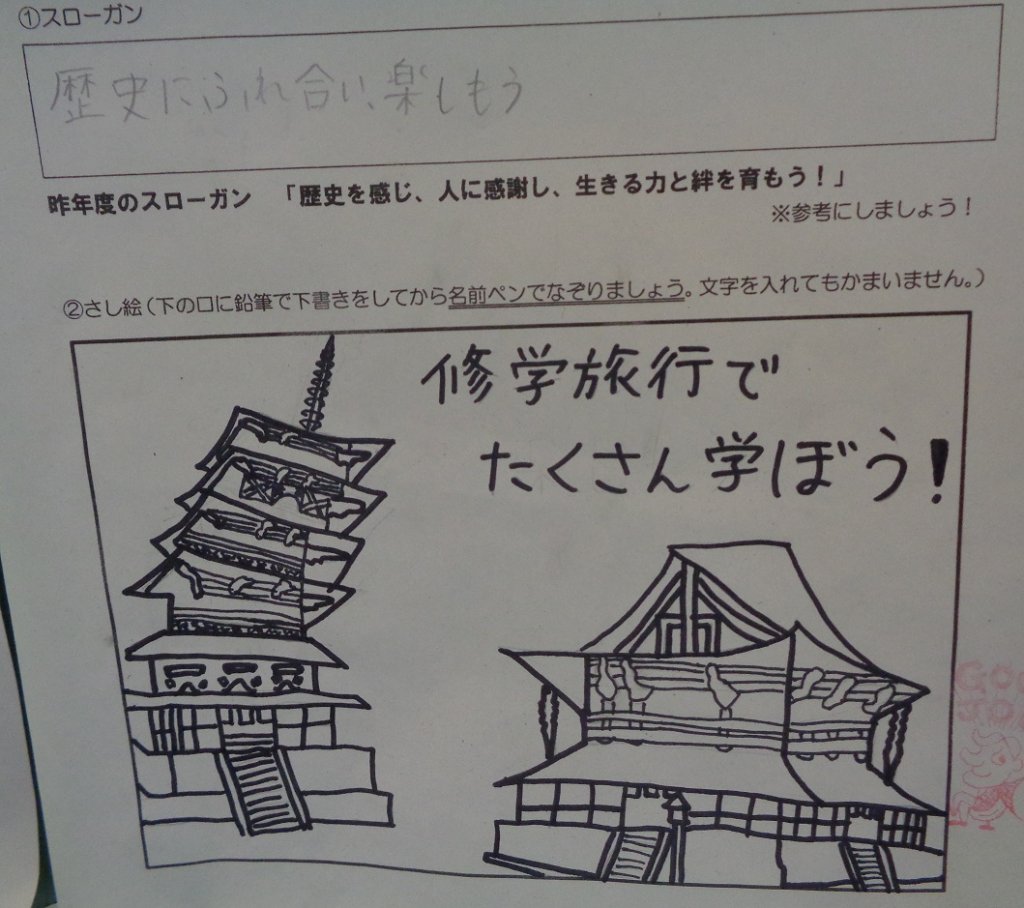 ①スローガン
歴史にふれ合い、楽しもう
昨年度のスローガン 「歴史を感じ、人に感謝し、生きる力と絆を育もう！」
※参考にしましょう！
②さし絵（下の口に鉛筆で下書きをしてから名前ペンでなぞりましょう。文字を入れてもかまいません。）
修学旅行で
たくさん学ぼう！